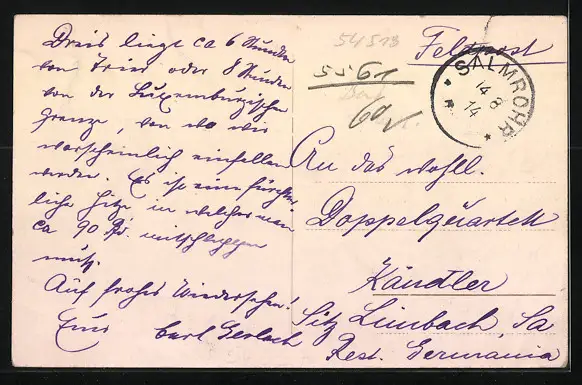 Dreis liegt ca 6 Stunden
von Trier oder 8 Stunden
von der Luxemburgischen
Grenze, von wo wir
warscheinlich einfallen
werden. Es ist eine fürchter
liche Hitze in welcher man
ca 90 Pfd. mitschleppen
muß.
Auf frohes Wiedersehen!
Euer Carl Gerlach
54513
Feldpost
5561
60
SALMROHR
14 8
14
An das wohll.
Doppelquartett
Kändler
Sitz Limbach, Sa
Rest. Germania